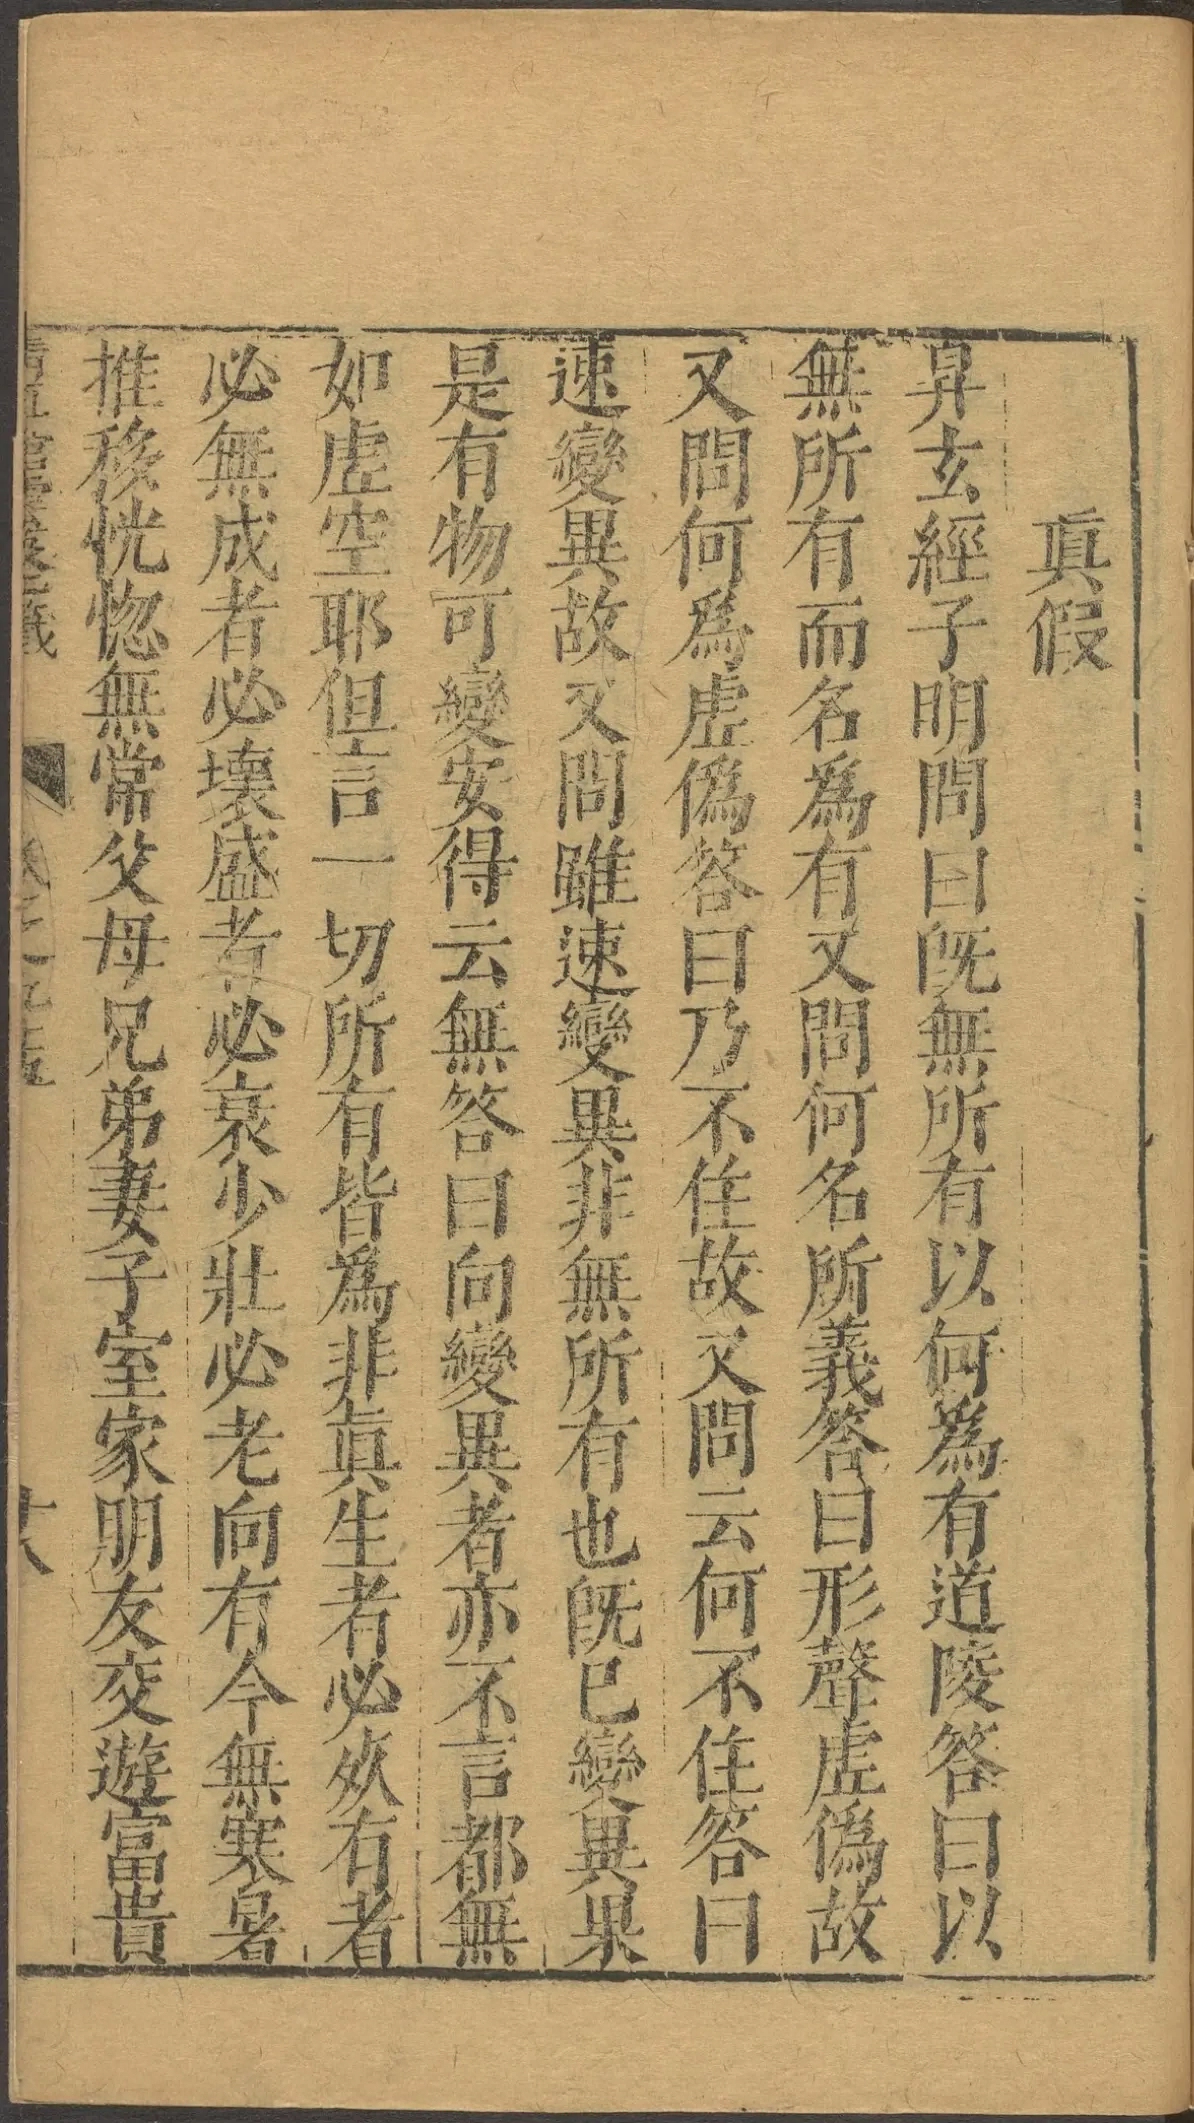 眞假
昇玄經子明問曰旣無所有以何爲有道陵答曰以
無所有而名爲有又問何名所義答曰形聲虛偽故
又問何爲虛偽答曰乃不住故又問云何不住答曰
速變異故又問雖速變異非無所有也旣已變異果
是有物可變安得云無答曰向變異者亦不言都無
如虛空耶但言一切所有皆爲非眞生者必死有者
必無成者必壞盛者必衰少壯必老向有今無寒暑
推移恍惚無常父母兄弟妻子室家朋友交遊富貴